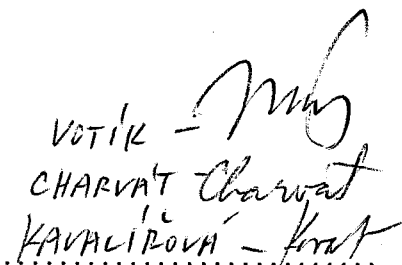 VOTÍK –
CHARVÁT Charvát
KAVALÍŘOVÁ –